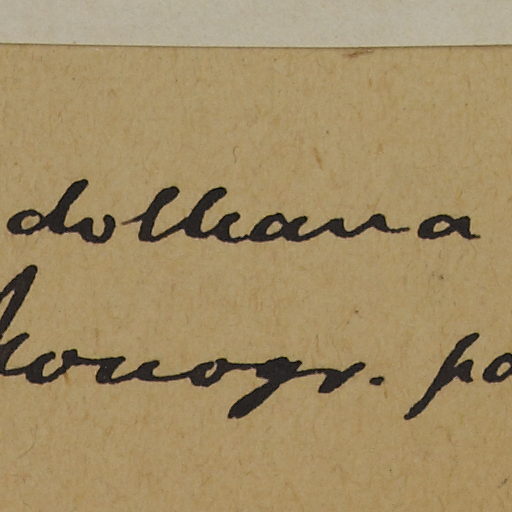 dolleana
Monogr. pa